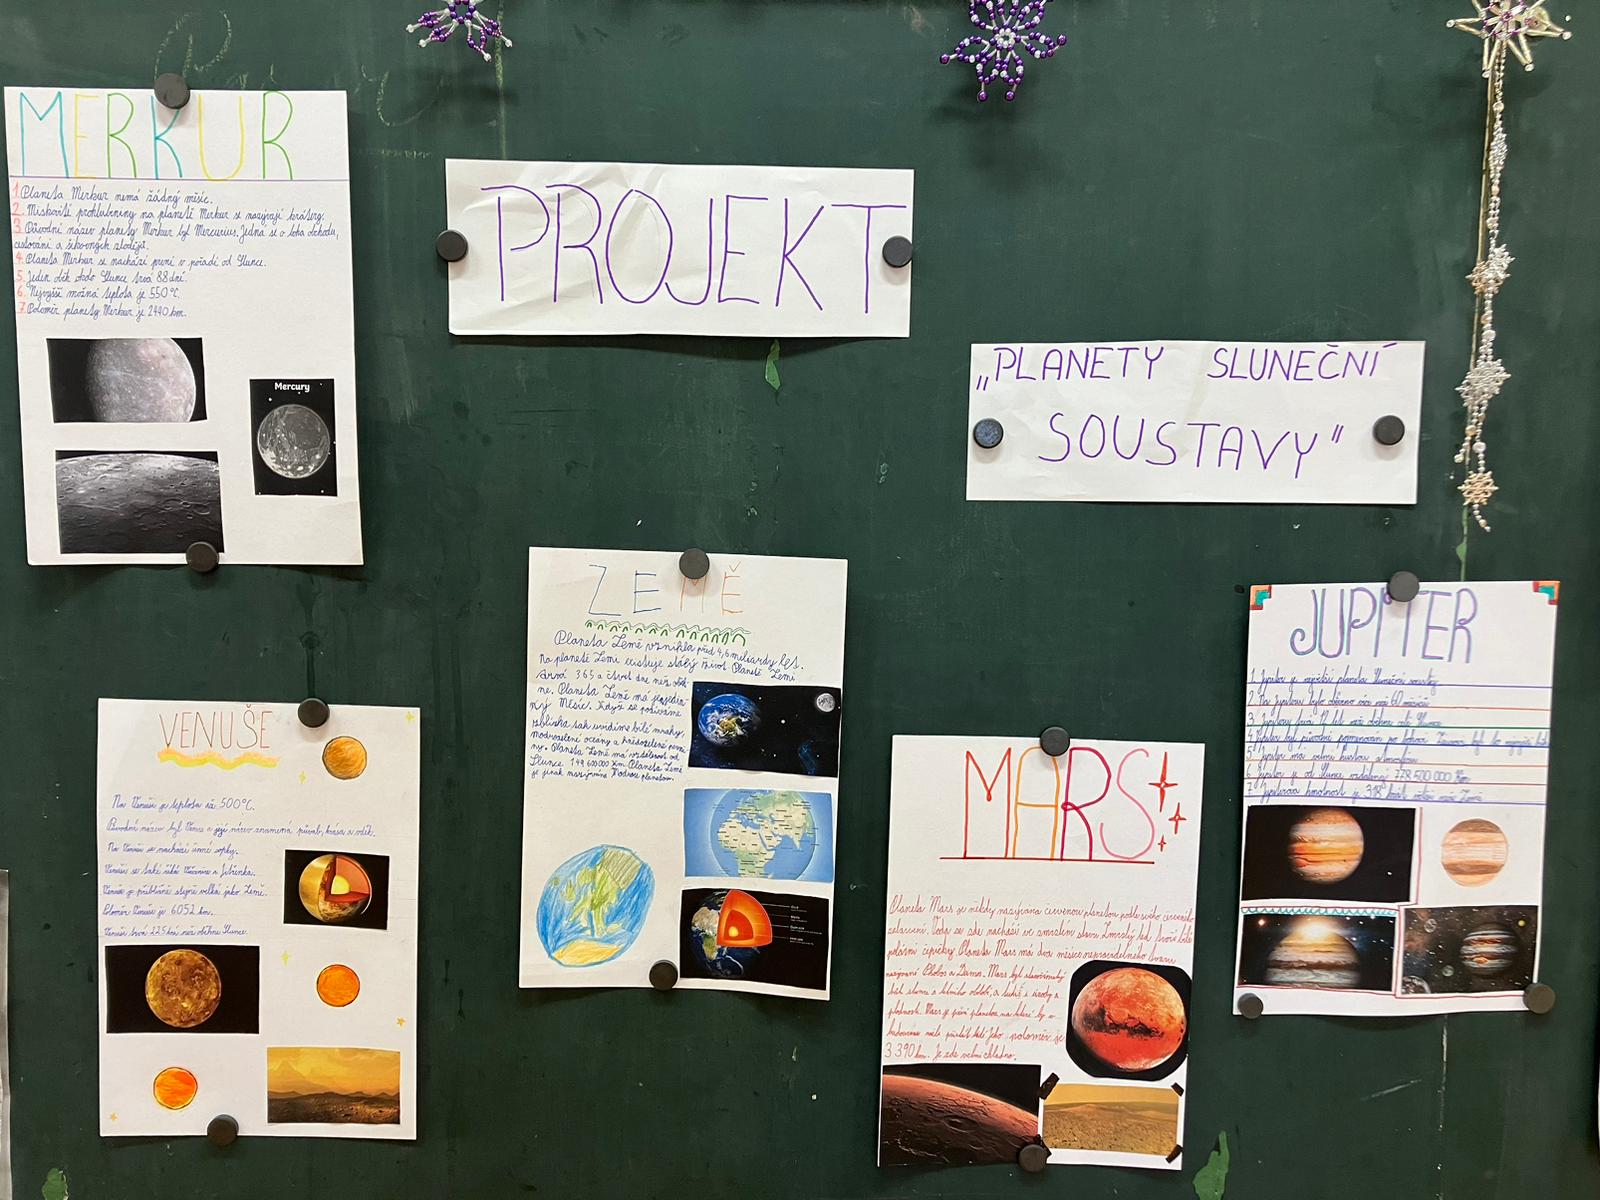 MERKUR
1. Planeta Merkur nemá žádný měsíc.
2. Miskovité prohlubniny na planetě Merkur se nazývají krátery.
3. Původní název planety Merkur byl Mercurius. Jedná se o boha obchodu,
cestování a šikovných zlodějů.
4. Planeta Merkur se nachází první v pořadí od Slunce.
5. Jeden oběh okolo Slunce trvá 88 dní.
6. Nejvyšší možná teplota je 550 °C.
7. Poloměr planety Merkur je 2440 km.
Mercury
PROJEKT
„PLANETY SLUNEČNÍ
SOUSTAVY"
VENUŠE
Na Venuši je teplota až 500°C.
Původní název byl Venus a její název znamená půvab, krása a vděk.
Na Venuši se nachází činné sopky.
Venuši se také říká Večernice a Jitřenka.
Venuše je přibližně stejně velká jako Země.
Poloměr Venuše je 6052 km.
Venuši trvá 225 dní než oběhne Slunce.
ZEMĚ
Planeta Země vznikla před 4,6 miliardy let.
Na planetě Zemi existuje stálý život. Planetě Zemi
trvá 365 a čtvrt dne než oběh-
ne. Planeta Země má jeden
Měsíc. Když se podíváme
zblízka tak uvidíme bílé mraky,
modrozelené oceány a hnědozelené pevni-
ny. Planeta Země má vzdálenost od
Slunce 149 600 000 km. Planeta Země
je jinak nazývána Modrou planetou.
MARS
Planeta Mars je někdy nazývána červenou planetou podle svého červeného
zabarvení. Voda se zde nachází ve zmrzlém stavu. Zmrzlý led tvoří bílé
polární čepičky. Planeta Mars má dva měsíce nepravidelného tvaru
nazývané Phobos a Deimos. Mars byl
bůh slunce a letního období, a také i úrody a
plodnosti. Mars je první planetou na které by v
budoucnu měli přistát lidé. Jeho poloměr je
3 390 km. Je zde velmi chladno.
JUPITER
1. Jupiter je největší planeta Sluneční soustavy.
2. Na Jupiteru bylo objeveno více než 60 měsíců
3. Jupiteru trvá 12 let než oběhne celé Slunce
4. Jupiter byl původně pojmenován po bohovi
5. Jupiter má velmi hustou atmosféru
6. Jupiter je od Slunce vzdálený 778 500 000 km
7. Jupiterova hmotnost je 318 krát větší než Země